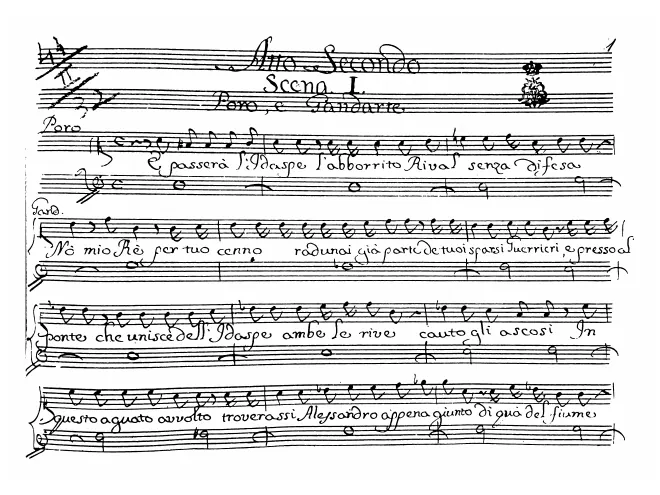 1
Atto Secondo
Scena I.
Poro, e Gandarte
Poro
E passerà l'Idaspe l'abborrito Rival senza difesa
Gand.
Nò mio Rè per tuo cenno radunai già parte de tuoi sparsi guerrieri, e presso al
ponte che unisce dell'Idaspe ambe le rive cauto gli ascosi In
questo aguato avvolto troverassi Alessandro appena giunto di quà del fiume